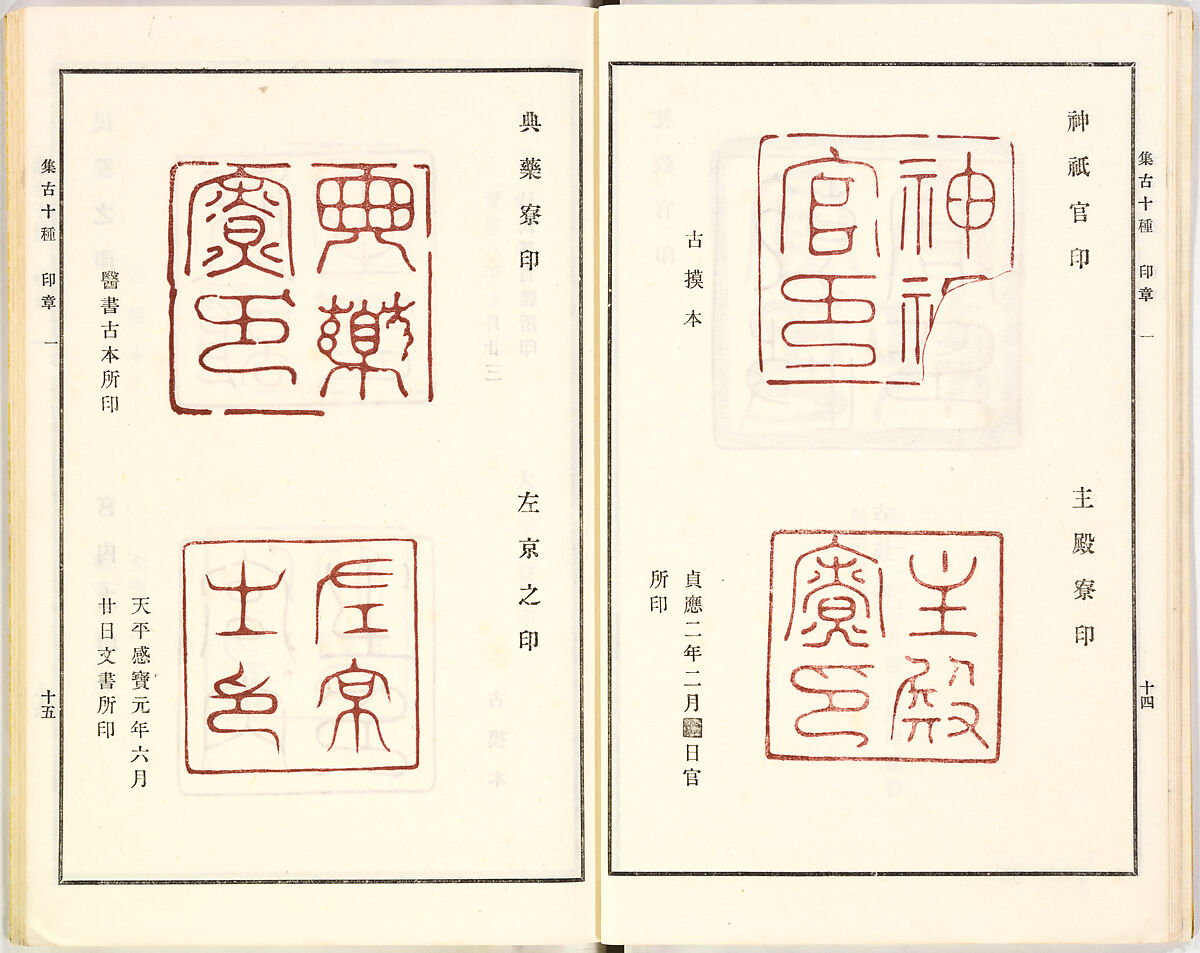 集古十種 印章 一
十四
神祇官印
神祇官印
古摸本
主殿寮印
主殿寮印
貞應二年二月
日官
所印
典藥寮印
典藥寮印
醫書古本所印
左京之印
左京之印
天平感寶元年六月
廿日文書所印
集古十種 印章 一
十五